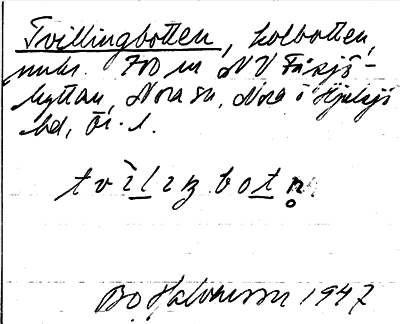 Tvillingbotten, kolbotten,
700 m NV Fåsjö-
hyttan, Nora sn, Nora o Hjulsjö
bd, Ör. l.
tvìliŋbotn̥
Bo Halvarsson 1947